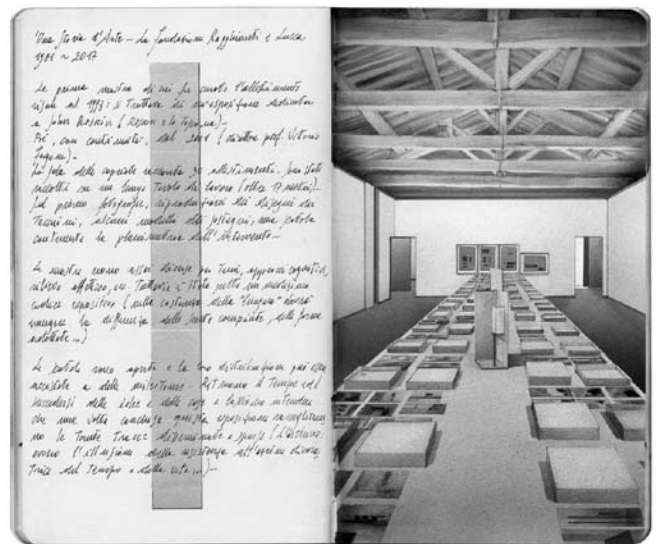 Una Storia d'Arte – La Fondazione Ragghianti e Lucca
1981 ~ 2017
La prima mostra di cui ho curato l'allestimento
risale al 1993: si trattava di un'esposizione dedicata
a John Ruskin (Ruskin e la Toscana)–
Poi, con continuità, dal 2001 (direttore prof. Vittorio
Fagone)–
La sala delle capriate racconta 30 allestimenti. Sono stati
raccolti su un lungo tavolo da lavoro (oltre 17 metri)–
Sul piano fotografie, riproduzioni di disegni
alcuni modelli dei una scatola
contenente la planimetria dell'intervento–
Le mostre erano assai diverse per temi, approcci cognitivi,
rilievo affettivo, per tutte è stato scelto un medesimo
codice espositivo (nella costanza della
la differenza delle parti compiute, delle forme
adottate ...)
Le scatole sono aperte e la loro
Ritmano il tempo ed il
succedersi delle idee e delle cose e lasciano intendere
che una volta conclusa questa esposizione
no le trenta tracce disseminate e sparse (
ovvero l'illusione della resistenza all'azione divora
trice del tempo e della vita ...)–